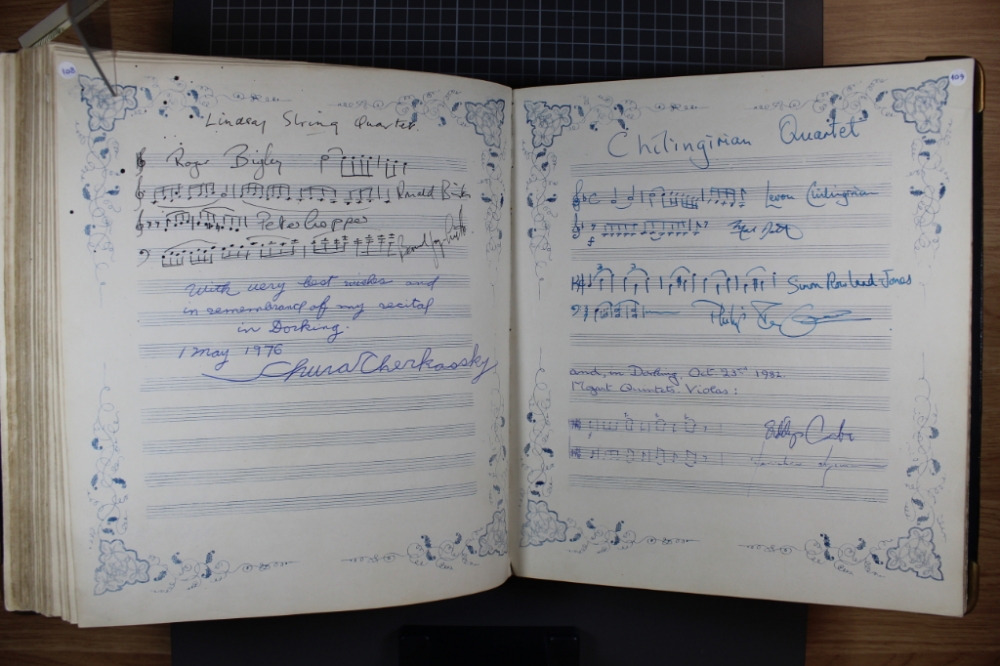 108
Lindsay String Quartet
Roger Bigley
Ronald Birks
Peter Cropper
With very best wishes and
in remembrance of my recital
in Dorking.
1 May 1976
Shura Cherkassky
109
Chilingirian Quartet
Levon Chilingirian
Simon Rowland-Jones
Philip
and, in Dorking, Oct. 23rd 1982.
Mozart Quintets. Violas: